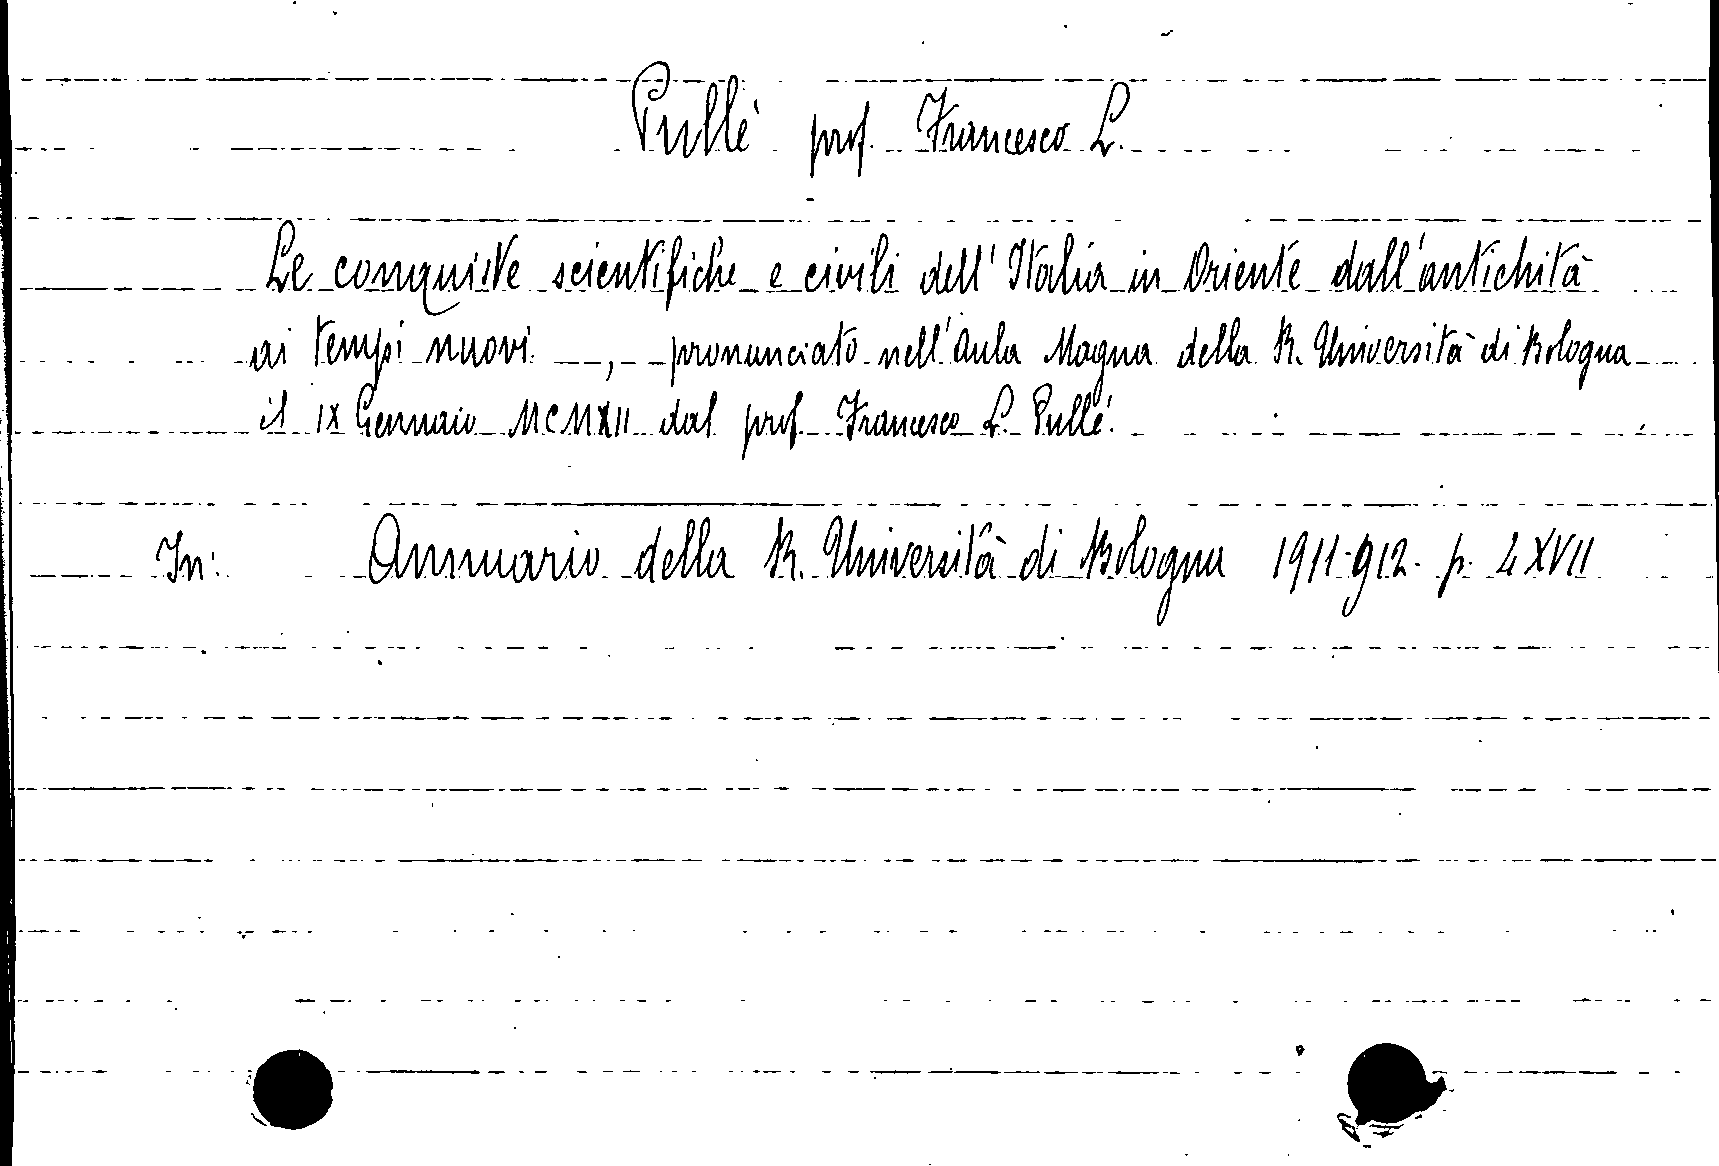 Pullè prof. Francesco L.
Le conquiste scientifiche e civili dell'Italia in Oriente dall'antichità
ai tempi nuovi. —, pronunciato nell'Aula Magna della R. Università di Bologna
il IX Gennaio MCMXII dal prof. Francesco L. Pullé.
In: Annuario della R. Università di Bologna 1911-912. p. LXVII